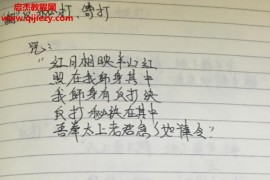 启杰教藏网
www.qijiezy.com
打、雪打
咒:
“红日相映半江红
照在我师身其中
我师身有反打法
反打秘诀在其中
吾奉太上老君急急如律令”